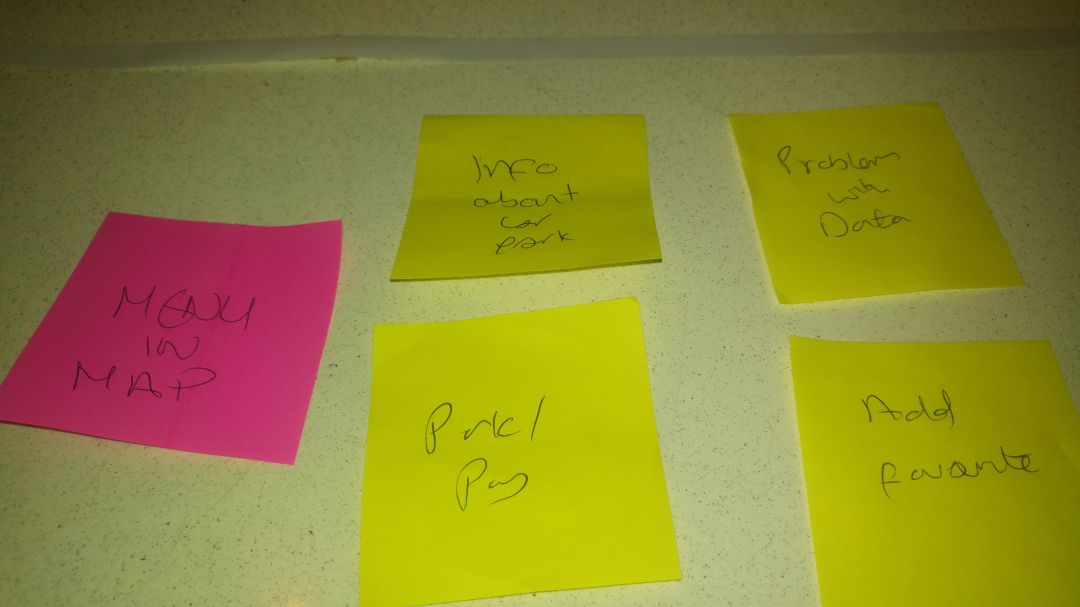 MENU
in
MAP
Info
about
car
park
Problem
with
Data
Park/
Pay
Add
favorite